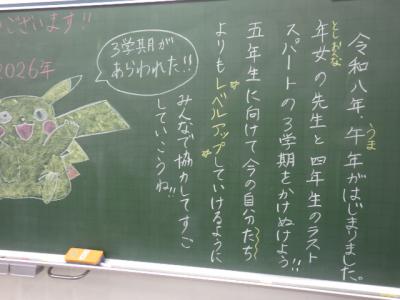 令和八年、午年がはじまりました。
うま
年女の先生と四年生のラスト
としおんな
スパートの3学期をかけぬけよう!!
五年生に向けて今の自分たち
よりもレベルアップしていけるように
みんなで協力してすご
していこうね!!
3学期が
あらわれた!!
ございます!!
2026年